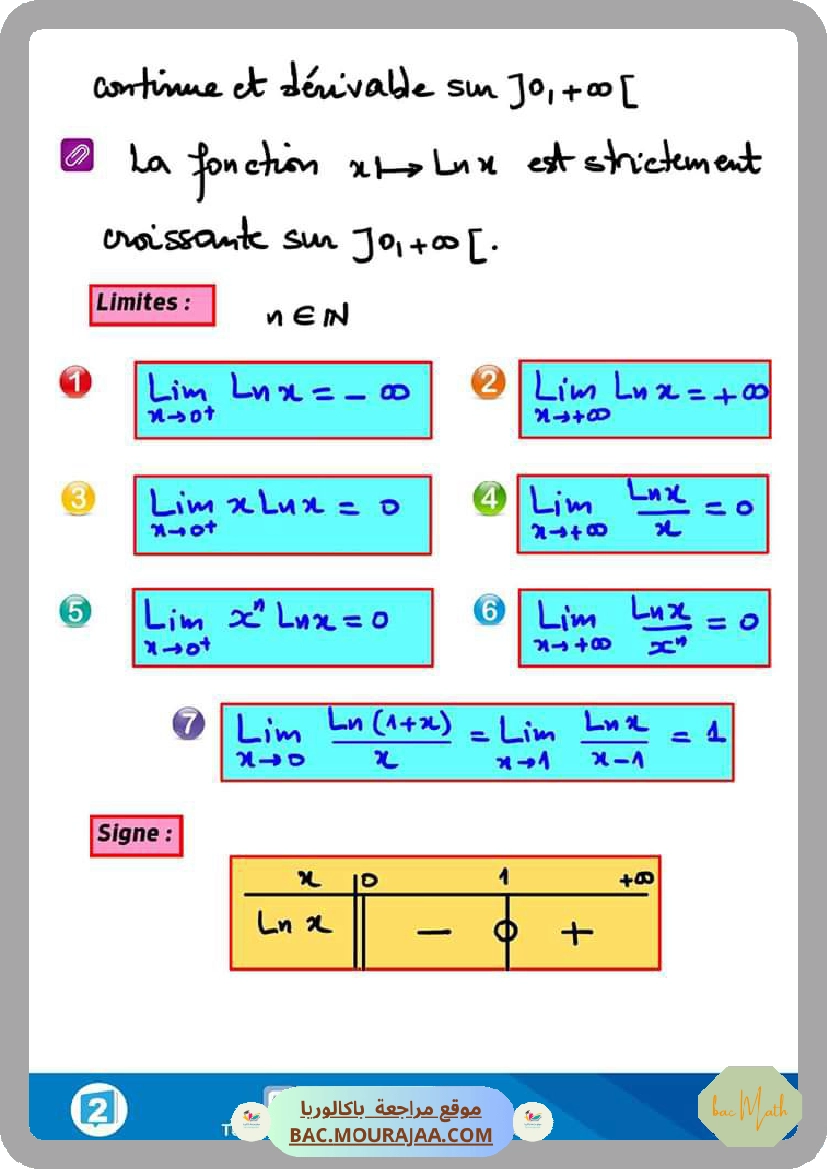 continue et dérivable sur ]0,+∞[
La fonction x↦Ln x est strictement
croissante sur ]0,+∞[.
Limites :
n ∈ ℕ
1 Lim Ln x = - ∞
x→0⁺
2 Lim Ln x = +∞
x→+∞
3 Lim x Ln x = 0
x→0⁺
4 Lim Ln x / x = 0
x→+∞
5 Lim xⁿ Ln x = 0
x→0⁺
6 Lim Ln x / xⁿ = 0
x→+∞
7 Lim Ln (1+x) / x = Lim Ln x / x-1 = 1
x→0 x→1
Signe :
x 0 1 +∞
Ln x - 0 +
2
موقع مراجعة باكالوريا
BAC.MOURAJAA.COM
bac Math